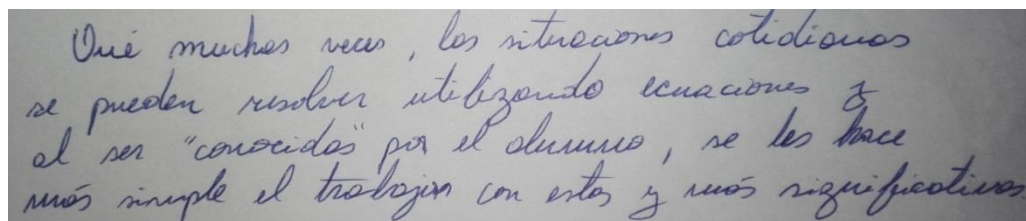 Qué muchas veces, las situaciones cotidianas
se pueden resolver utilizando ecuaciones y
al ser "conocidas" por el alumno, se les hace
más simple el trabajar con estas y más significativas